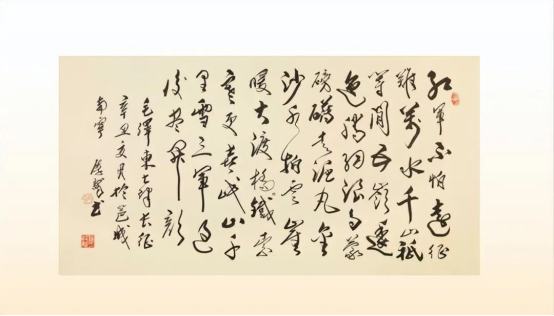 紅軍不怕遠征
難萬水千山祗
等閒五嶺逶
迤騰細浪烏蒙
磅礴走泥丸金
沙水拍雲崖
暖大渡橋鐵索
寒更喜岷山千
里雪三軍過
後盡開顏
毛澤東七律長征
辛丑夏月於邕城
南寧 書